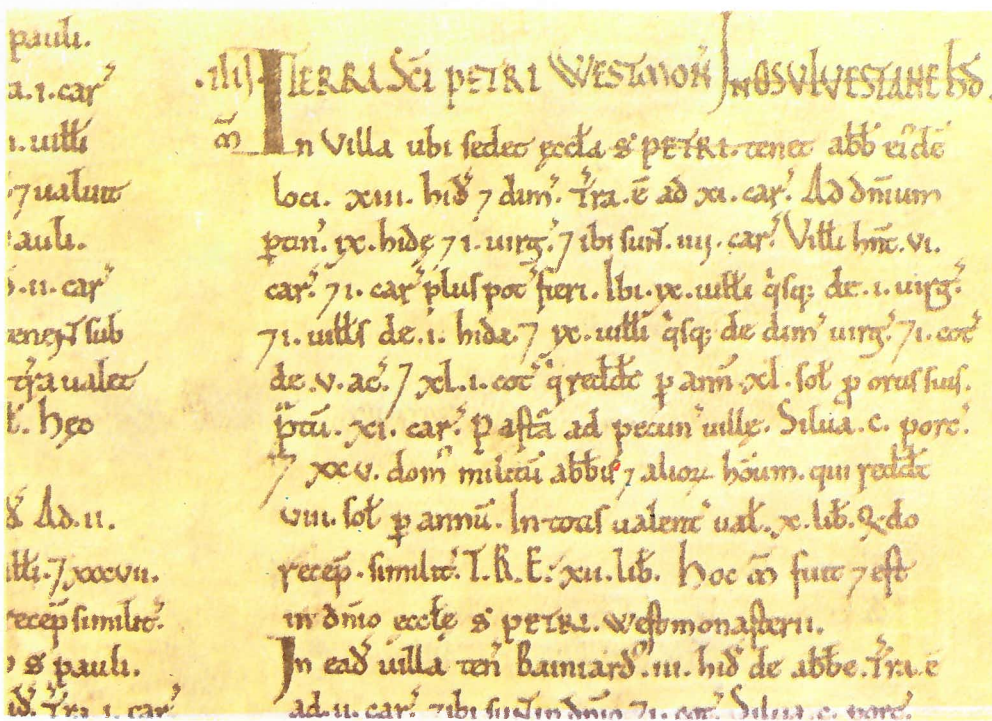 pauli.
a.i.car̃
i.uiƚƚi
⁊ualuit
auli.
.ii.car̃
teneñt sub
t̃ra ualet
hęo
Ad.ii.
iƚƚi.⁊xxxvii.
recep̃ similit̃.
s̃ pauli.
hid̃. T̃ra.i.car̃
.iiij. TERRA SC̃I PETRI WESTMON̄ IN OSVLVESTANE HD̄.
m̃ In Villa ubi sedet ęccƚa S̃ PETRI. tenet abƀ eiꝰdē
loci. xiii. hid̃ ⁊ dim̃. T̃ra.ē ad xi. car̃. Ad dn̄ium
ptin̄. ix. hidę ⁊ i. uirg̃. ⁊ ibi sun̄t. iiij. car̃. Viƚƚi hn̄t. vi.
car̃. ⁊ i. car̃ plus pot̃ fieri. Ibi. ix. uiƚƚi q̇sq; de. i. uirg̃.
⁊ i. uiƚƚs de. i. hida. ⁊ ix. uiƚƚi q̇sq; de dim̃ uirg̃. ⁊ i. cot̃
de. v. ac̃. ⁊ xl. i. cot̃ q̇ redd̄t p ann̄. xl. soƚ p ortis suis.
P̃tū. xi. car̃. Pastā ad pecun̄ uillę. Silua. c. porc̃.
⁊ xxv. dom̃ militū abb̃is ⁊ alioꝝ hōum. qui redd̄t
viii. soƚ p annū. In totis ualent̃ uaƚ. x. liƀ. Qdo
recep̃. similit̃. T.R.E. xii. liƀ. Hoc m̃ fuit ⁊ est
in dn̄io eccƚę S̃ PETRI. westmonasterii.
In ead̃ uilla ten̄ Bainiard̃. iii. hid̃ de abƀe. T̃ra.ē
ad. ii. car̃. ⁊ ibi sun̄t in dn̄io ⁊ i. cot̃. Silua. c. porc̃.